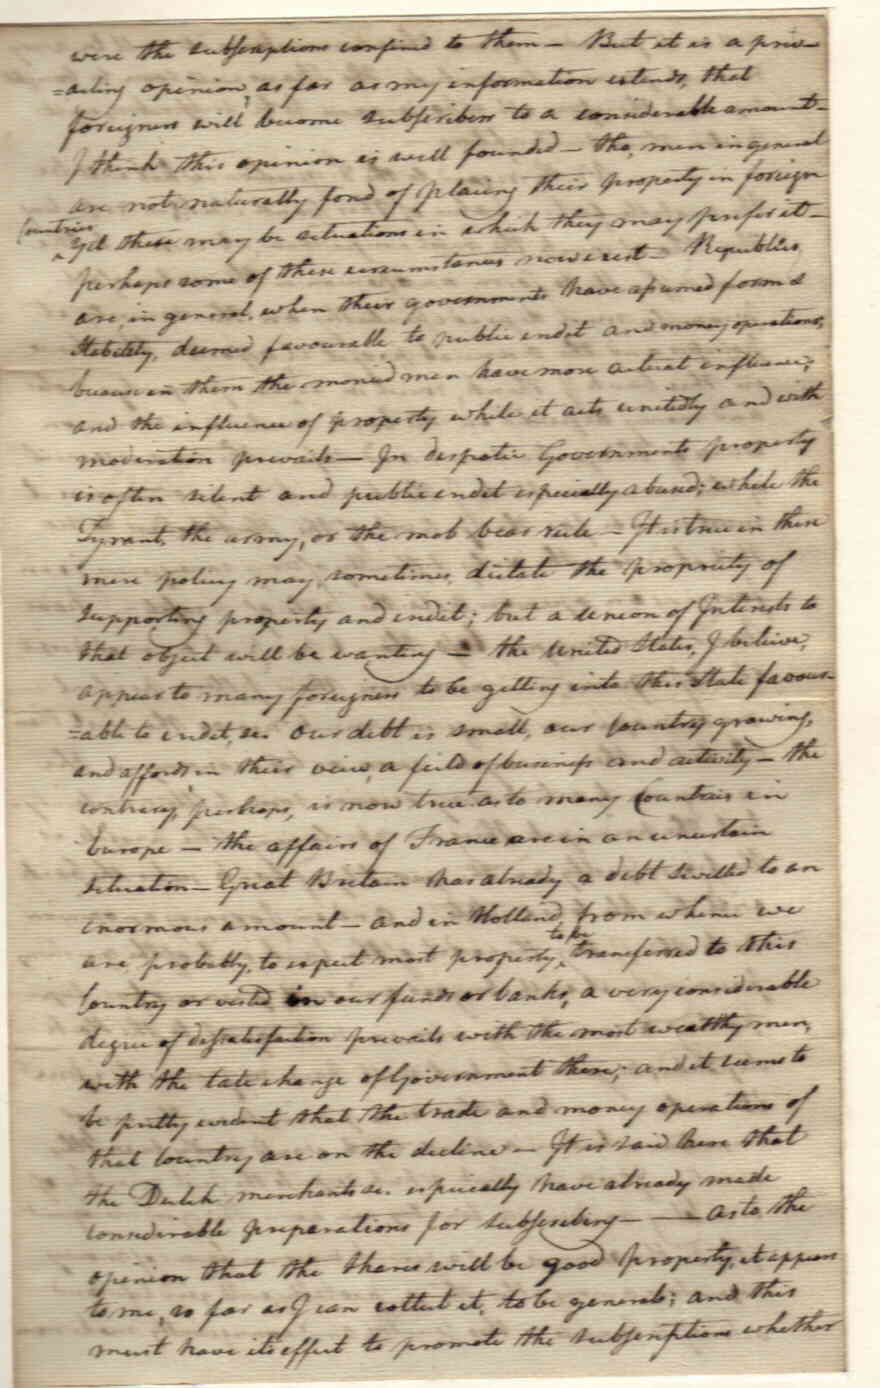 were the subscriptions confined to them — But it is a prev-
=ailing opinion, as far as my information extends, that
foreigners will become subscribers to a considerable amount —
I think this opinion is well founded — tho, men in general
are not naturally fond of placing their property in foreign
Countries
^ yet there may be situations in which they may prefer it —
perhaps some of these circumstances now exist — Republics
are, in general, when their governments have assumed form &
Stability, deemed favourable to public credit and money operations,
because in them the monied men have more actual influence;
and the influence of property while it acts unitedly and with
moderation prevails — In despotic Governments property
is often silent and public credit especially abused; while the
Tyrant, the army, or the mob bear rule — It is true in these
mere policy may, sometimes, dictate the propriety of
supporting property and credit; but a union of Interests to
that object will be wanting — the United States, I believe,
appear to many foreigners to be getting into this State favour-
=able to credit, &c. Our debt is small, our Country growing,
and affords in their view, a field of business and activity — the
contrary, perhaps, is now true as to many Countries in
Europe — the affairs of France are in an uncertain
situation — Great Britain has already a debt swelled to an
enormous amount — and in Holland, from whence we
are probably, to expect most property, ^ to be transferred to this
Country or vested in our funds or banks, a very considerable
degree of dissatisfaction prevails with the most wealthy men,
with the late change of Government there; and it seems to
be pretty evident that the trade and money operations of
that Country are on the decline — It is said here that
the Dutch merchants &c. especially have already made
considerable preparations for subscribing — — As to the
opinion that the shares will be good property, it appears
to me, so far as I can collect it, to be general; and this
must have its effect to promote the subscriptions whether